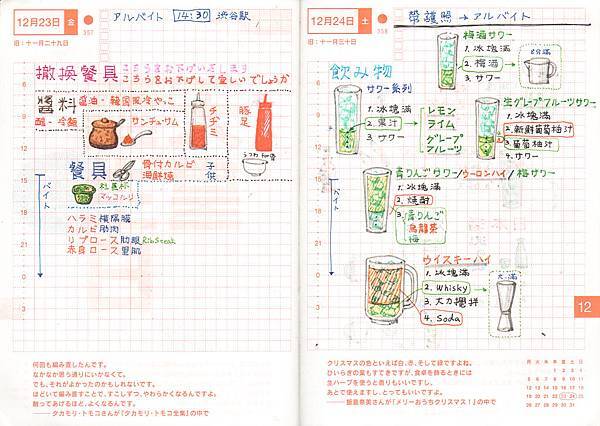 12月23日 金
357
アルバイト 14:30 渋谷駅
旧:十一月二十九日
撤換餐具
こちらをお下げして宜しいでしょうか
醬料
醬油・韓國風冷やっこ
醋・冷麵
サンチュ・サム
チヂミ
豚足
餐具
骨付カルビ
海鮮焼
子供
マッコルリ
バイト
ハラミ 橫隔膜
カルビ 肋肉
リブロース 肋眼 Rib Steak
赤身ロース 里肌
15
18
21
0
3
6
何回も編み直したんです。
なかなか思う通りにいかなくて。
でも、それがよかったのかもしれないです。
ほどいて編み直すことで、すこしずつ、やわらかくなるんですよ。
触ってあげるほど、よくなるんです。
——タカモリ・トモコさんが『タカモリ・トモコ全集』の中で
12月24日 土
358
帶護照→アルバイト
旧:十一月三十日
飲み物
サワー系列
1. 冰塊滿
2. 果汁
3. サワー
レモン
ライム
グレープフルーツ
梅酒サワー
1. 冰塊滿
2. 梅酒
3. サワー
8分滿
生グレープフルーツサワー
1. 冰塊滿
2. 新鮮葡萄柚汁
3. 葡萄柚汁
4. サワー
青りんごサワー/ウーロンハイ/梅サワー
1. 冰塊滿
2. 燒酎
3. 青りんご
烏龍茶
梅
ウイスキーハイ
1. 冰塊滿
2. Whisky
3. 大力攪拌
4. Soda
大滿
バイト
15
18
21
0
3
6
12
クリスマスの色といえば白、赤、そして緑ですよね。
ひいらぎの葉もすてきですが、食卓を飾るときには
生ハーブを使うと香りもいいですし、
あとで使えますし、とってもいいですよ。
——飯島奈美さんが「メリーおうちクリスマス!」の中で
月 火 水 木 金 土 日
1 2 3 4
5 6 7 8 9 10 11
12 13 14 15 16 17 18
19 20 21 22 23 24 25
26 27 28 29 30 31